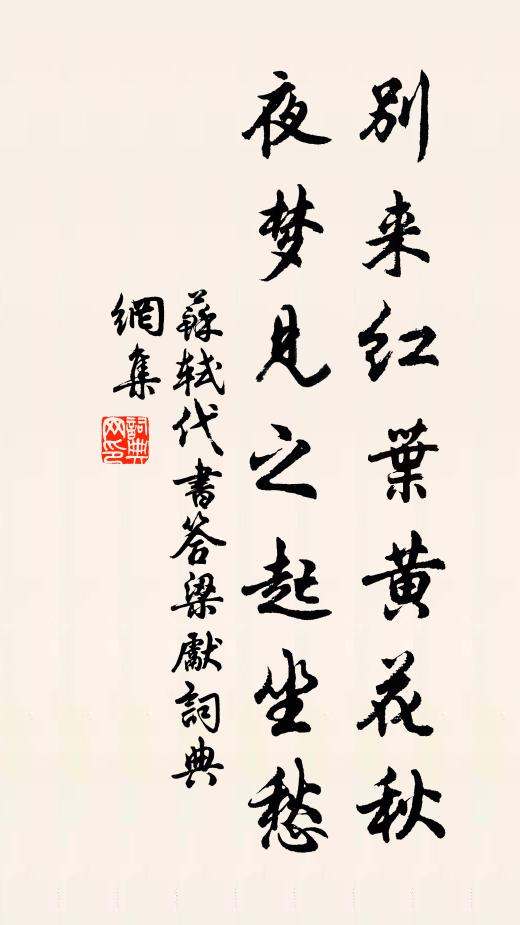 別来红葉黄花秋
夜梦見之起坐愁
蘇軾代書答梁獻詞典
網集
詞典
网印